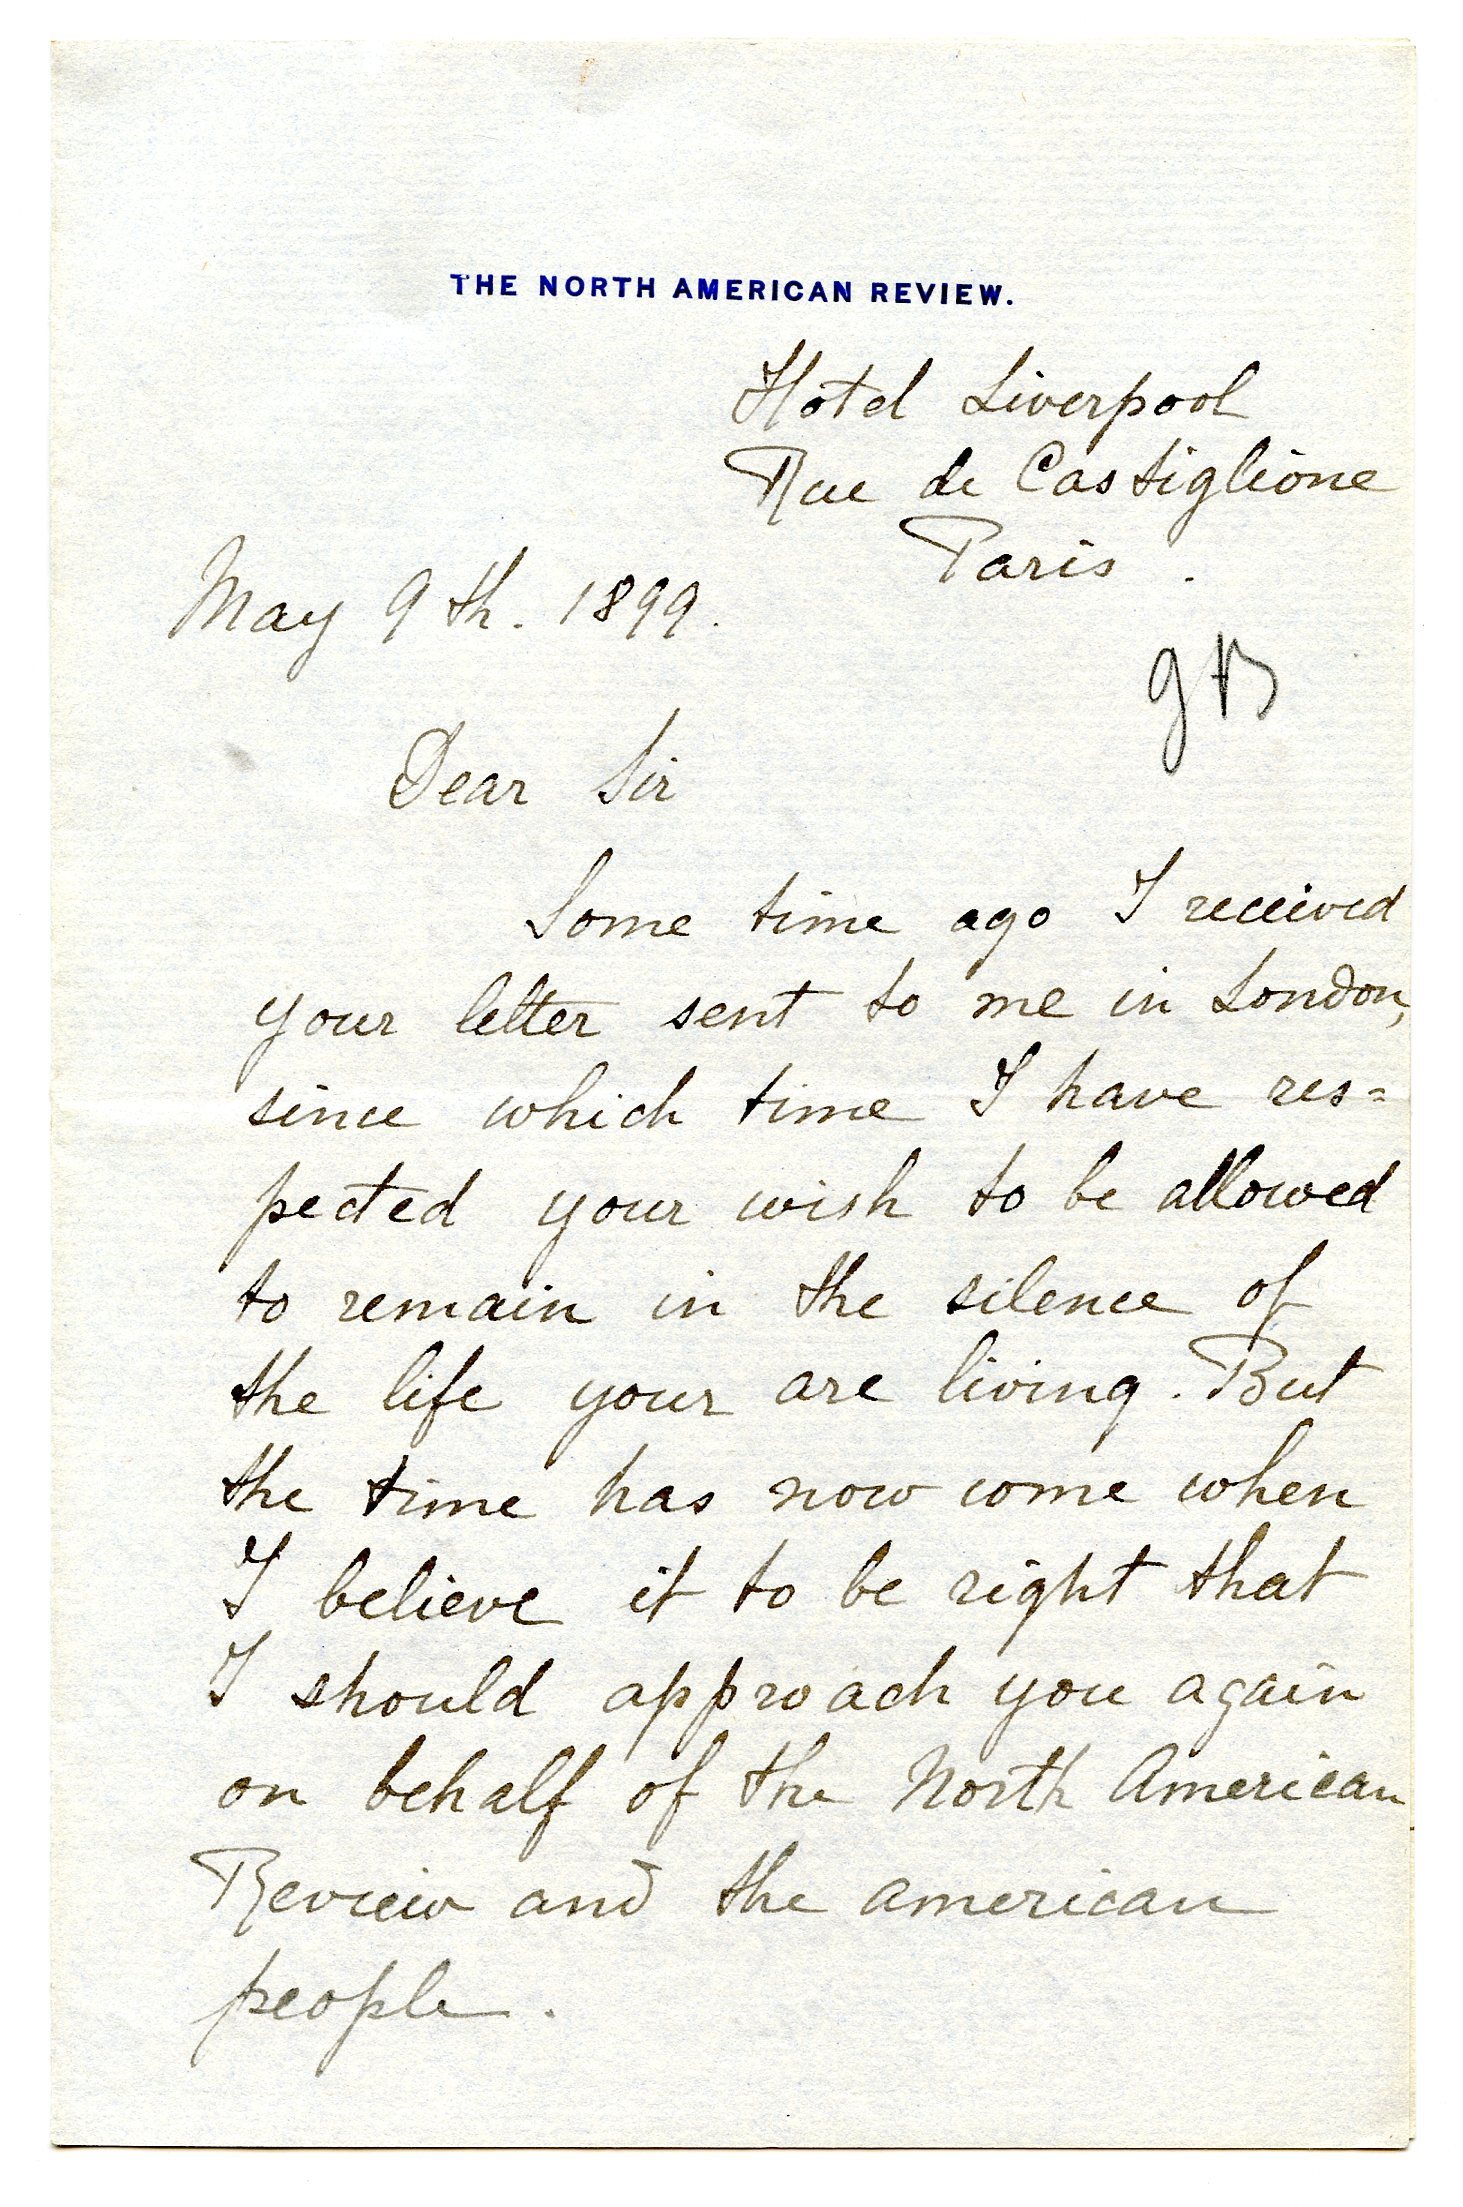 THE NORTH AMERICAN REVIEW.
Hotel Liverpool
Rue de Castiglione
Paris.
May 9th. 1899.
gB
Dear Sir
Some time ago I received
your letter sent to me in London,
since which time I have res=
pected your wish to be allowed
to remain in the silence of
the life your are living. But
the time has now come when
I believe it to be right that
I should approach you again
on behalf of the North American
Review and the american
people.